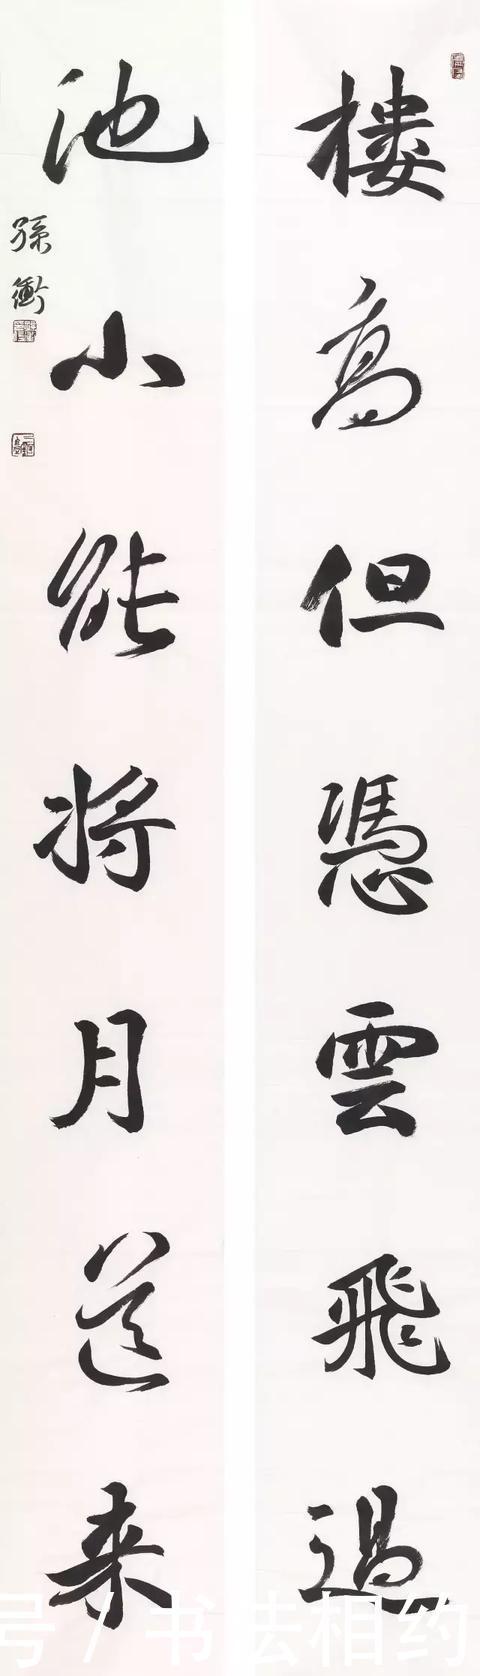 樓高但憑雲飛過
池小能将月送来
孫衡
号/书法相约